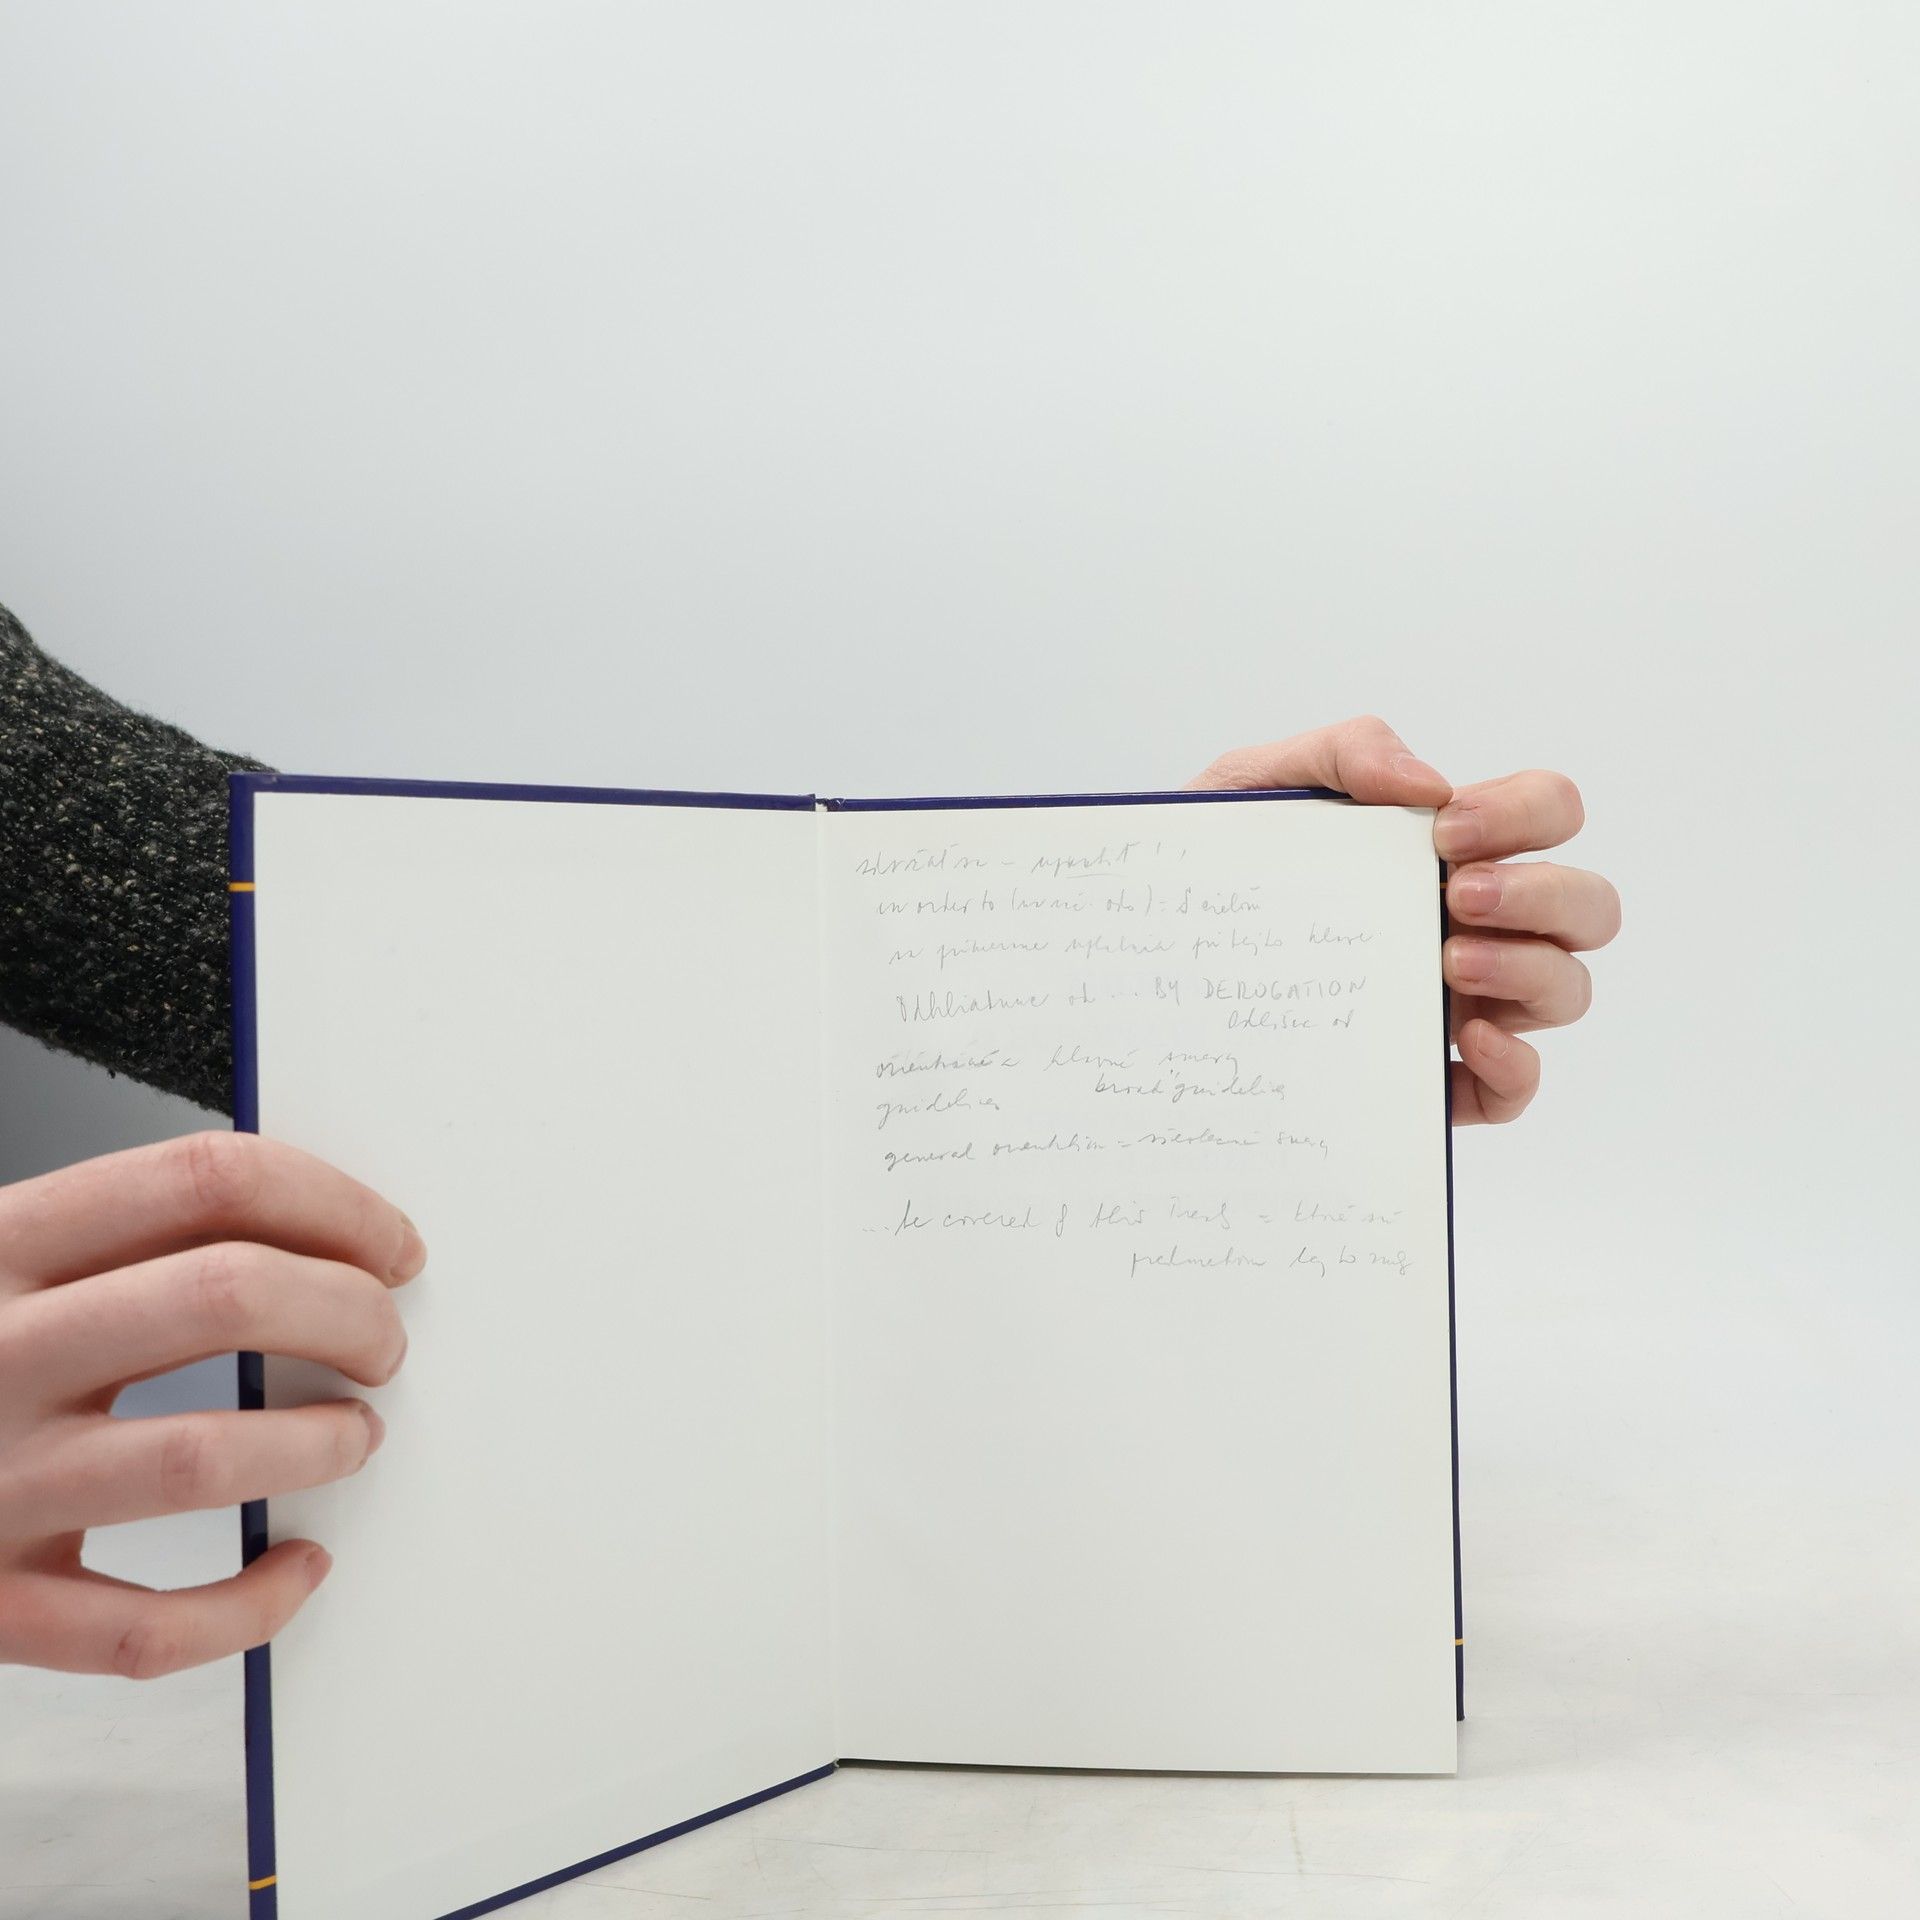 zdržať sa – upustiť
in order to = s cieľom
sa primerane uplatnia pri tejto hlave
Odhliadnuc od ... BY DEROGATION
odlišne od
orientačné hlavné smery
guidelines broad guidelines
general orientation = všeobecné smery
... be covered of this Treaty = ktoré sú
predmetom tejto zmluvy